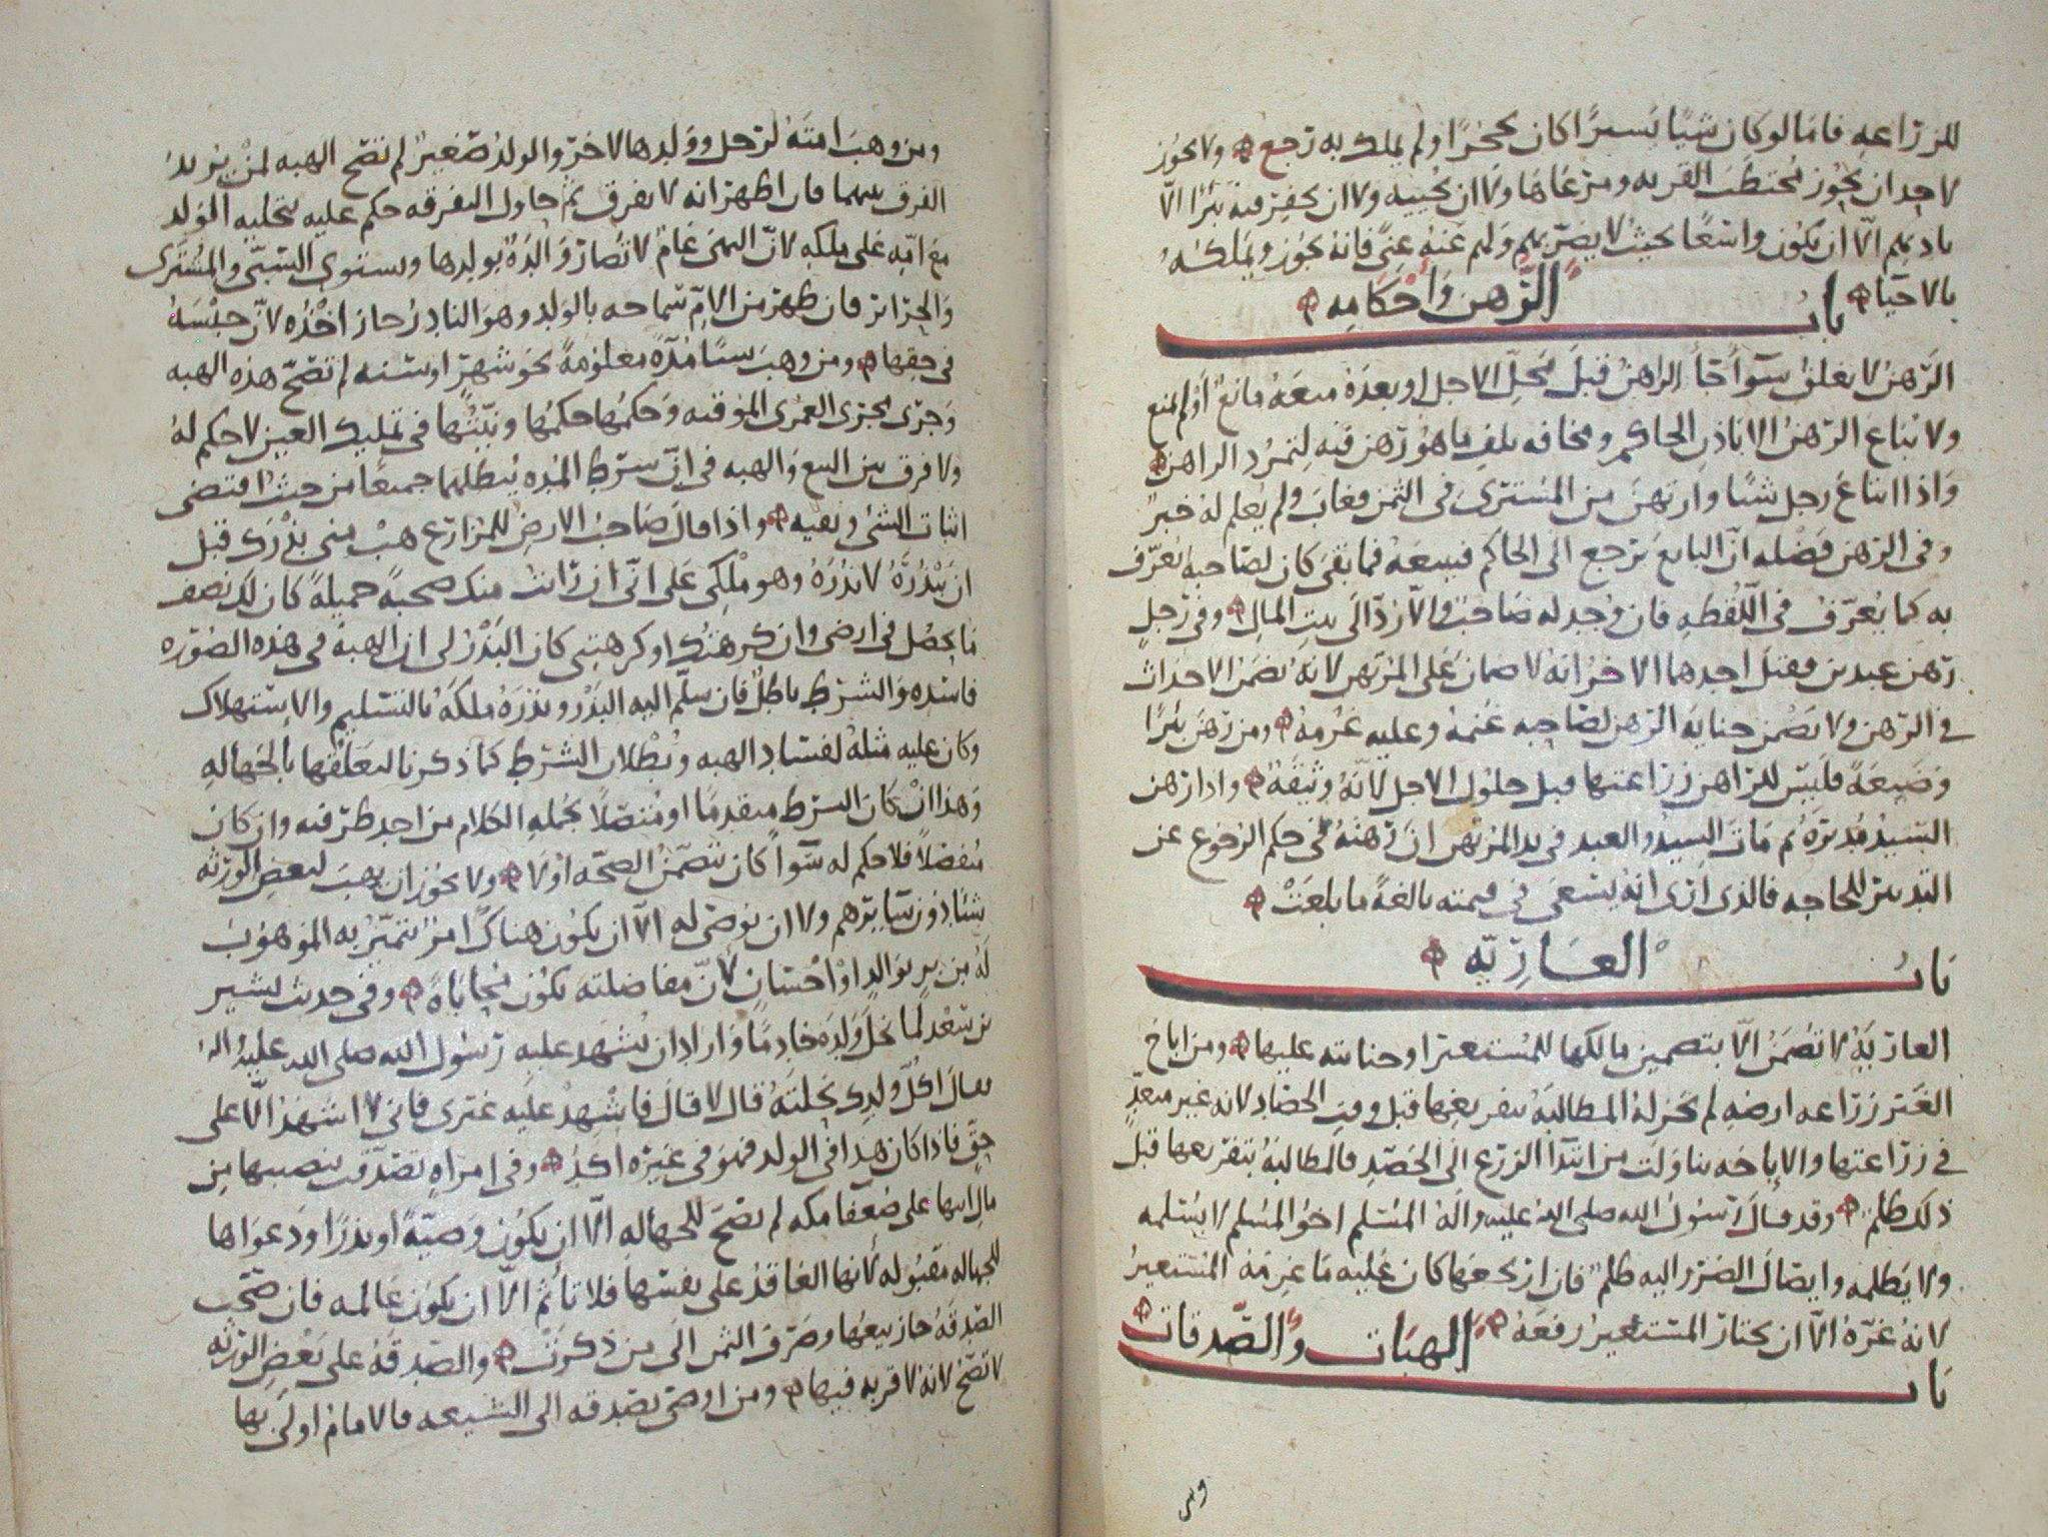 للمزراعه فاما لو كان شيًا يسيرًا كان تحجرًا ولم يملك به رجع ولا يجوز
لاحد ان يحوز محتطب القريه ومرعاها ولا ان يحييه ولا ان يحفر فيه بئرًا الّا
باذنهم الّا ان يكون واسعًا بحيث لا يضرّ بهم ولهم عنه غنىً فانه يجوز ويملكه
بالاحيا
باب الرّهن وأحكامه
الرّهن لا يغلق سوآ جآ الراهن قبل محلّ الاجل او بعده منعه مانع أو لم يمنع
ولا يُباع الرّهن الا باذن الحاكم ومخافه تلف ما هو رهن فيه لتمرّد الراهن
واذا ابتاع رجل شيًا وارتهن من المشترى في الثمن فغاب ولم يعلم له خبر
وفى الرّهن فضله انّ البايع يرجع الى الحاكم فيبيعه فما بقى كان لصاحبه يعرّف
به كما يُعرّف فى اللّقطه فان وُجد له صاحب والّا ردّ الى بيت المال وفى رجل
رهن عبدين فقتل احدهما الاخر انه لا ضمان على المرتهن لانه يضمن الاحداث
في الرّهن ولا يضمن جنايه الرّهن لصاحبه غنمه وعليه غرمه ومن رهن بئرًا
وضيعةً فليس للرّاهن زراعتها قبل حلول الاجل لانّه وثيقه واذا رهن
السّيد مدبّره ثم مات السيد والعبد فى يد المرتهن انّ رهنه فى حكم الرجوع عن
التدبير للحاجه فالذى ارى انه يسعى فى قيمته بالغةً ما بلغتْ
باب العاريّه
العاريّه لا تُضمن الّا بتضمين مالكها للمستعير او جنايته عليها ومن اباح
الغير زراعه ارضه لم يجز له المطالبه بتفريغها قبل وقت الحصاد لانه غير متعدٍّ
في زراعتها والاباحه تناولت من ابتدآ الزرع الى الحصد فالمطالبه بتفريغها قبل
ذلك ظلم وقد قال رسول الله صلى الله عليه وآله المسلم اخو المسلم لا يسلمه
ولا يظلمه وايصال الضرر اليه ظلم فان ارتجعها كان عليه ما غرمه المستعير
لانه غرّه الّا ان يختار المستعير رفعه
باب الهبات والصّدقات
ومن
ومن وهب امته لرجل وولدها لاخر والولد صغير لم تصح الهبه لمن يريد
الفرق بينهما فان اظهر انه لا يفرق ثم حاول التفرقه حكم عليه بتخليه الولد
مع امّه على ملكه لانّ النهى عامٌ لا تضارّ والدة بولدها ويستوى السّبى والمشترى
والجزائر فان ظهر من الامّ سماحه بالولد وهو النادر جاز اخذه لانّ حبسه
فى حقها ومن وهب شيًا مدّةً معلومةً نحو شهرٍ او سنه لم تصحّ هذه الهبه
وجرى مجرى العمرى المؤقته وحكمها حكمها ونيّتها فى تمليك العين لا حكم له
ولا فرق بين البيع والهبه فى انّ شرط المده يبطلهما جميعًا من حيث اقتضى
اثبات الشى ونفيه واذا قال صاحب الارض للمزارع هبْ منى بذرك قبل
ان تبذره لابذره وهو ملكى على انّى ان رايت منك صحبةً جميلةً كان لك نصف
ما يحصل فى ارضى وان كرهتك او كرهتنى كان البذر لى ان الهبه فى هذه الصّوره
فاسده والشرط باطل فان سلّم اليه البذر وبذره ملكه بالتسليم والاستهلاك
وكان عليه مثله لفساد الهبه وبطلان الشرط كما ذكرنا لتعلّقها بالجهاله
وهذا انْ كان الشرط متقدمًا او متصلًا بجمله الكلام من احد طرفيه وان كان
منفصلًا فلا حكم له سوآ كان يتضمّن الصحّه اولا ولا يجوز ان يهب لبعض الورثه
شيًا دون سايرهم ولا ان يوصى له الّا ان يكون هناك امر يتميّز به الموهوب
له من برٍ بوالدٍ او احسانٍ لانّ مفاضلته يكون محاباةً وفى حديث بشير
بن سعد لما نحل ولده خادمًا واراد ان يشهد عليه رسول الله صلى الله عليه وآله
فقال اكلّ ولدك نحلته قال لا قال فاشهد عليه غيرى فانى لا اشهد الّا على
حقّ فاذا كان هذا فى الولد فهو فى غيره آكد وفى امراهٍ تصدّقت بنصيبها من
مال ابيها على ضعفا مكه لم تصحّ للجهاله الّا ان يكون وصيّةً او نذرًا ودعواها
للجهاله مقبوله لانها العاقد على نفسها فلا تاثم الّا ان يكون عالمه فان صحّت
الصّدقه جاز بيعها وصرف الثمن الى من ذكرتْ والصّدقه على بعض الورثه
لا تصحّ لانه لا قربه فيها ومن اوصى بصدقه الى الشيعه فالامام اولى بها